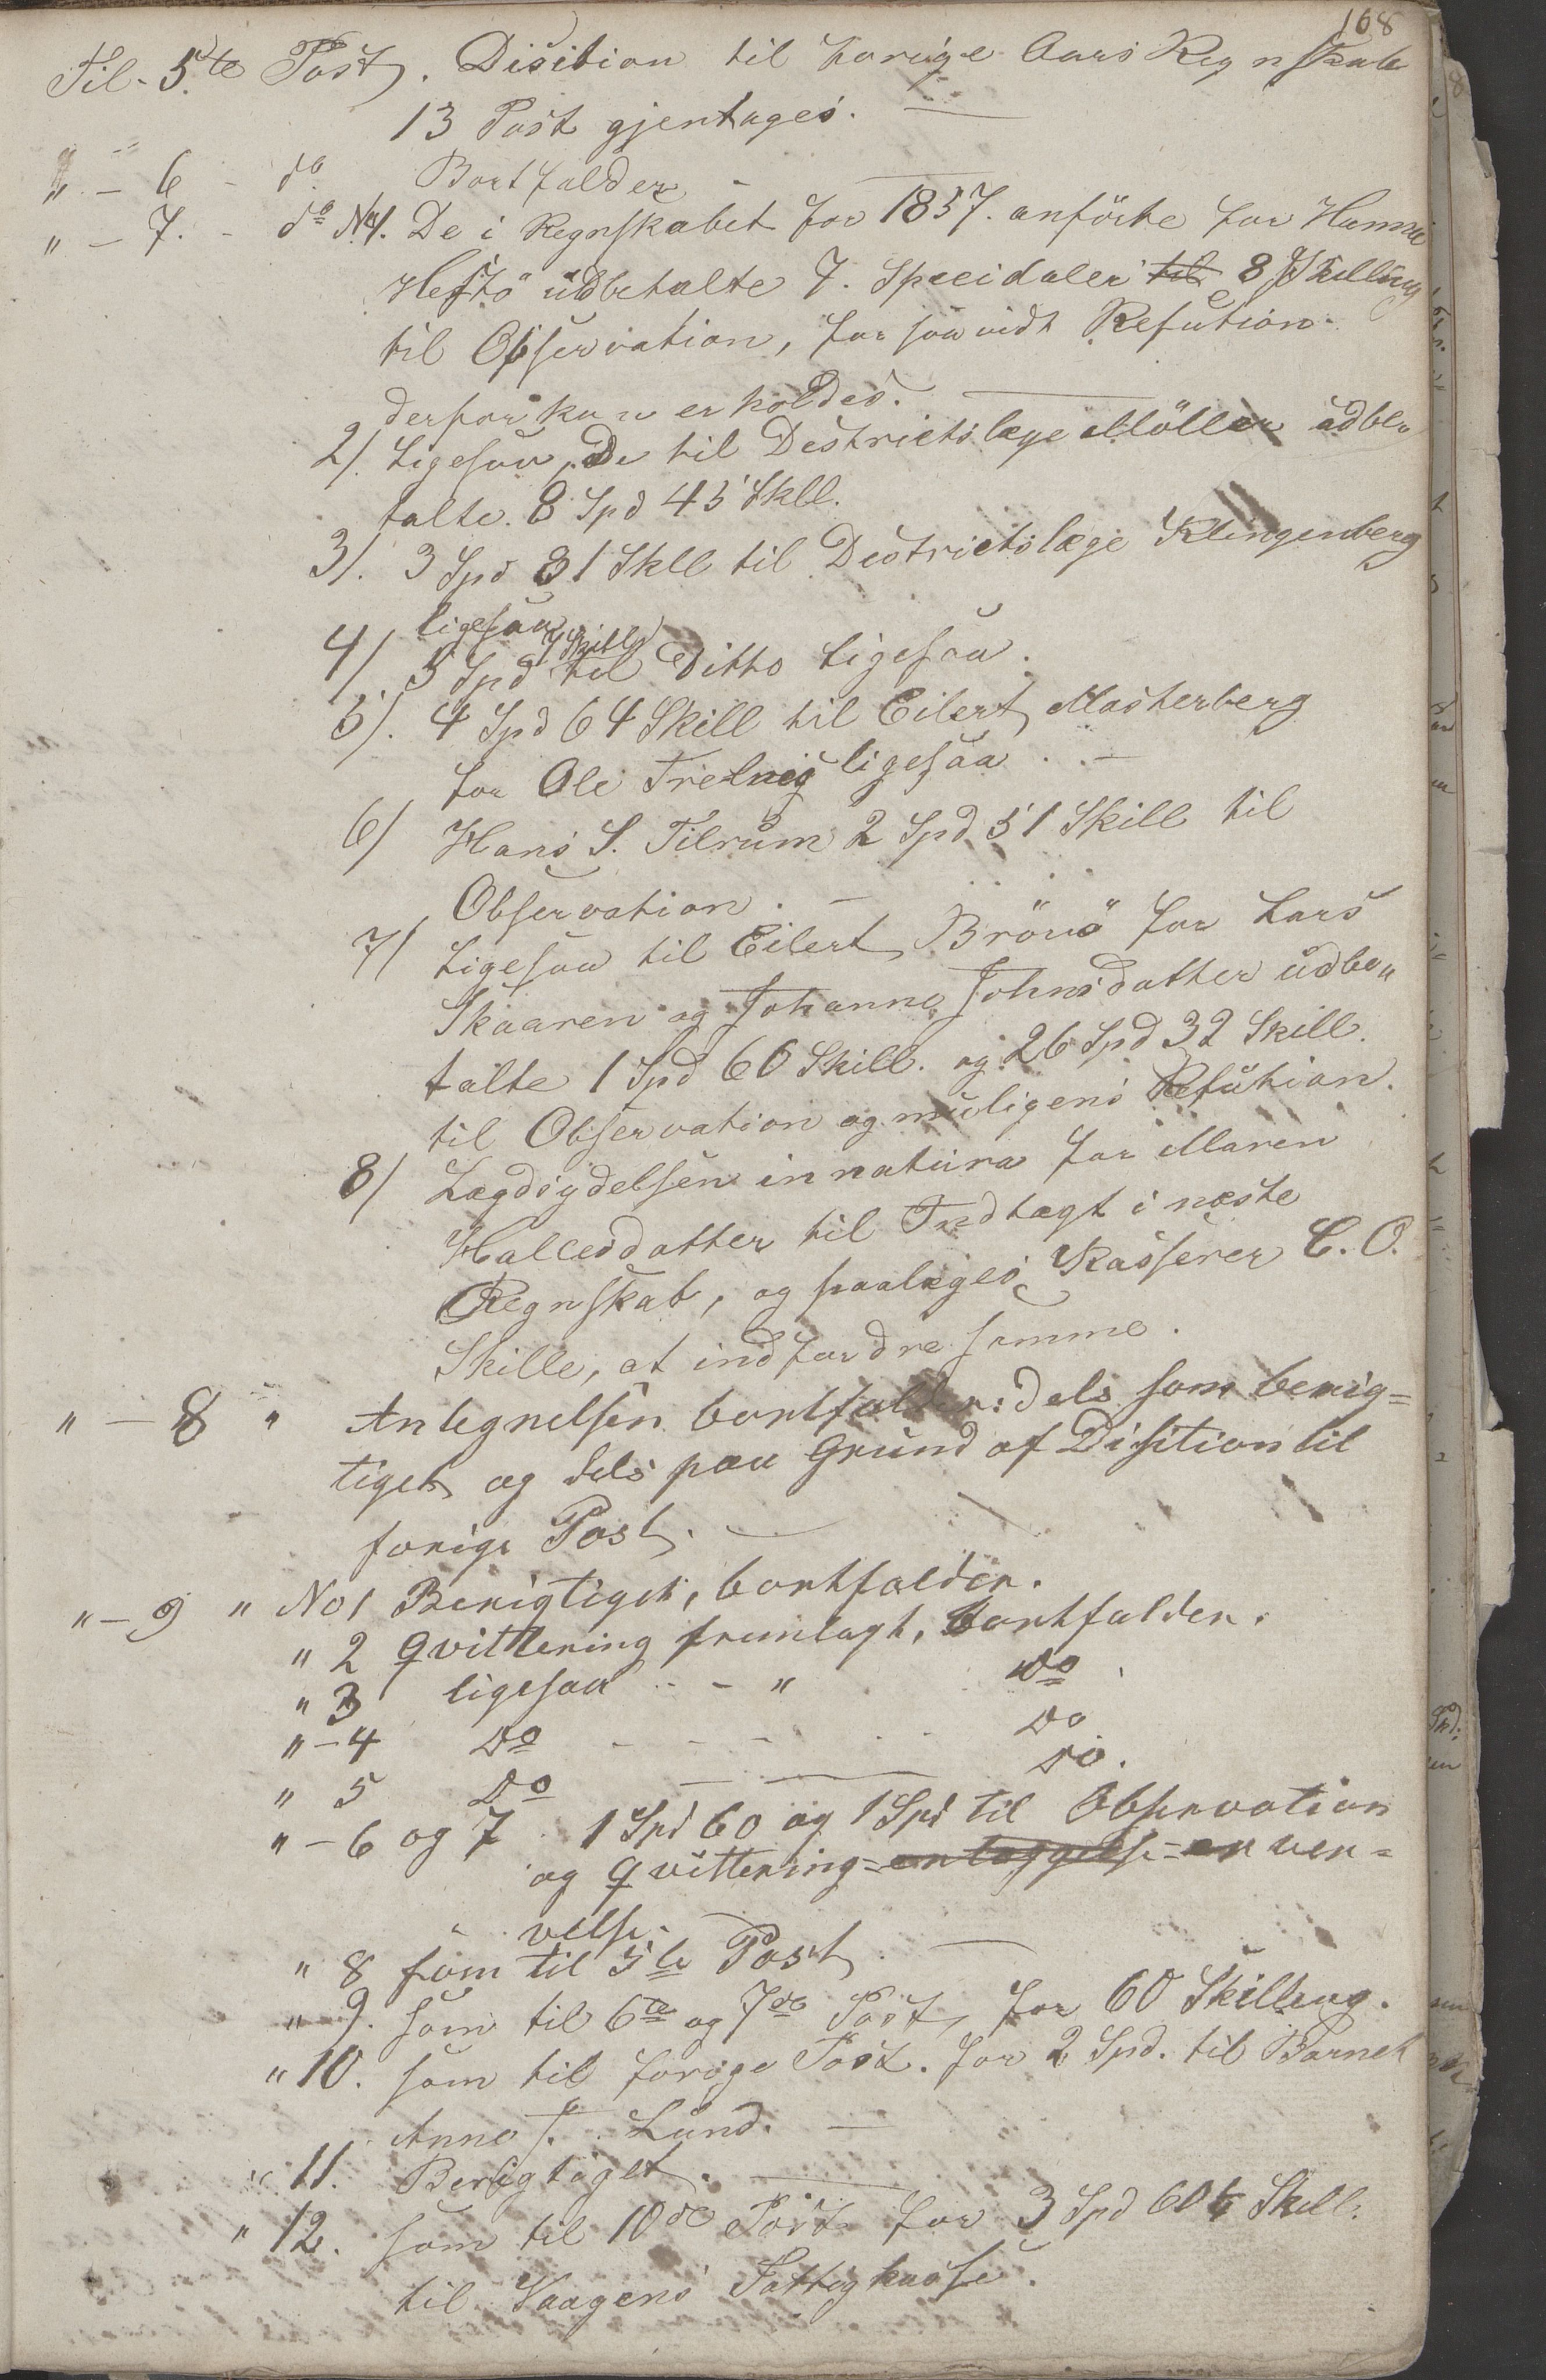 168
Til 5te Post. Disition til Forrige Aars Regnskab
13 Post gjentages.
" – 6 – do Bortfalder –
" – 7. – do No 1. De i Regnskabet for 1857. anförte for Hanna
Hestö udbetalte 7. Speeidaler til 8 Skilling
til Observation, forsaavidt Refution
derfor kan erholdes.
2). Ligesaa, De til Destrictslæge Möller udbe
talte. 8 Spd 45 Skll.
3). 3 Spd 81 Skll til Destrictslæge Klingenberg
ligesaa
4) 5 Spd 4 Skill til Ditto Ligesaa.
5). 4 Spd 64 Skill til Eilert Masterberg
for Ole ligesaa. –
6) Hans S. Tilrum 2 Spd. 51 Skill til
Observation. –
7) Ligesaa til Eilert Brönö for Lars
Skaaren og Johanna Johnsdatter udbe"
talte 1 Spd 60 Skill. og 26 Spd 32 Skill.
til Observation og muligens Refution.
8) Lægdsydelsen in natura for Maren
Halcesdatter til Indtægt i næste
Regnskab, og paalæges Kasserer C. O.
Skille, at indfordre samme.
" – 8 " Antegnelsen bortfalder: dels som berig=
tiget og dels paa Grund af Disition til
forige Post. –
" – 9 " No 1 Berigtiget, bortfalder.
" 2 Qvittering fremlagt, bortfalder.
" 3 ligesaa - - " Do
" – 4 Do - - - Do
" 5 Do — — Do.
" – 6 og 7 1 Spd 60 og 1 Spd til Observation
og qvittering= ver=
velse.
" 8 som til 5te Post. —
" 9. som til 6te og 7de Post, for 60 Skilling.
" 10. som til forige Post. for 2 Spd. til Barnet
Anne J. Lund. —
" 11. Berigtiget. —
" 12. som til 10de Post for 3 Spd 60 Skill.
til Vaagens Fattigkasse.